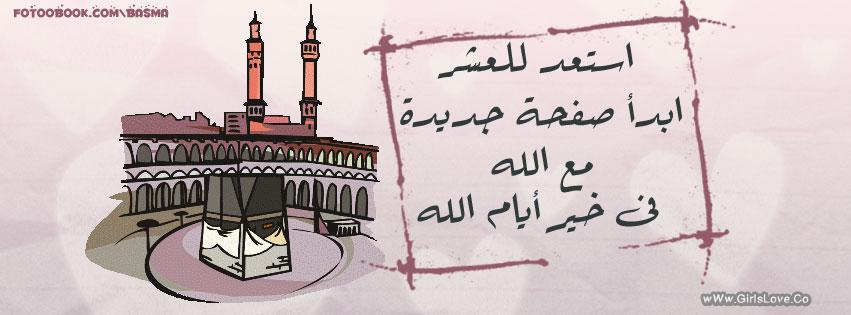 FOTOOBOOK.COM/BASMA
استعد للعشر
ابدأ صفحة جديدة
مع الله
فى خير أيام الله
wWw.GirlsLove.Co